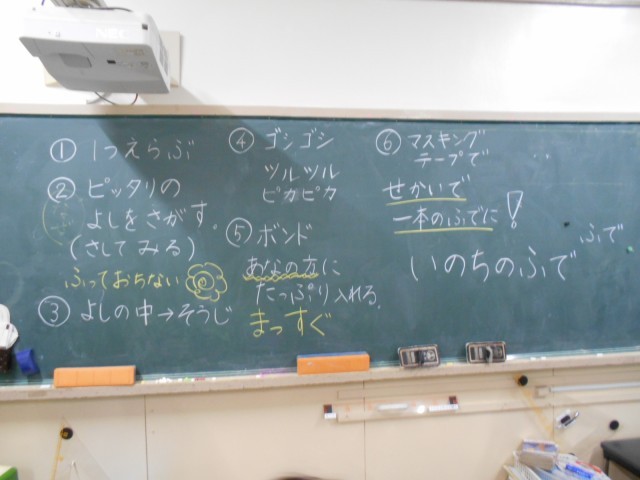 NEC
① 1つえらぶ
② ピッタリの
よしをさがす。
(さしてみる)
ふっておちない
③ よしの中→そうじ
④ ゴシゴシ
ツルツル
ピカピカ
⑤ ボンド
あなの方に
たっぷり入れる。
まっすぐ
⑥ マスキング
テープで
せかいで
一本のふでに!
いのちのふで
ふで